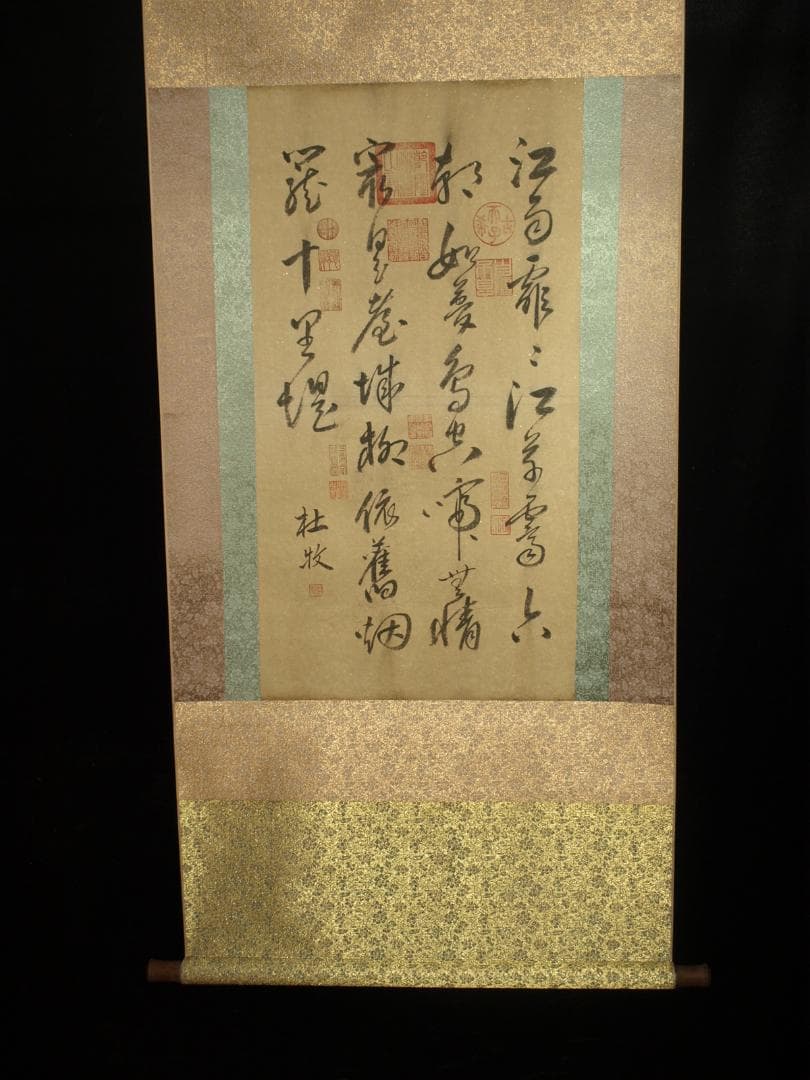 江雨霏〻江草齊六
朝如夢鳥空啼無情
最是臺城柳依舊烟
籠十里堤
杜牧